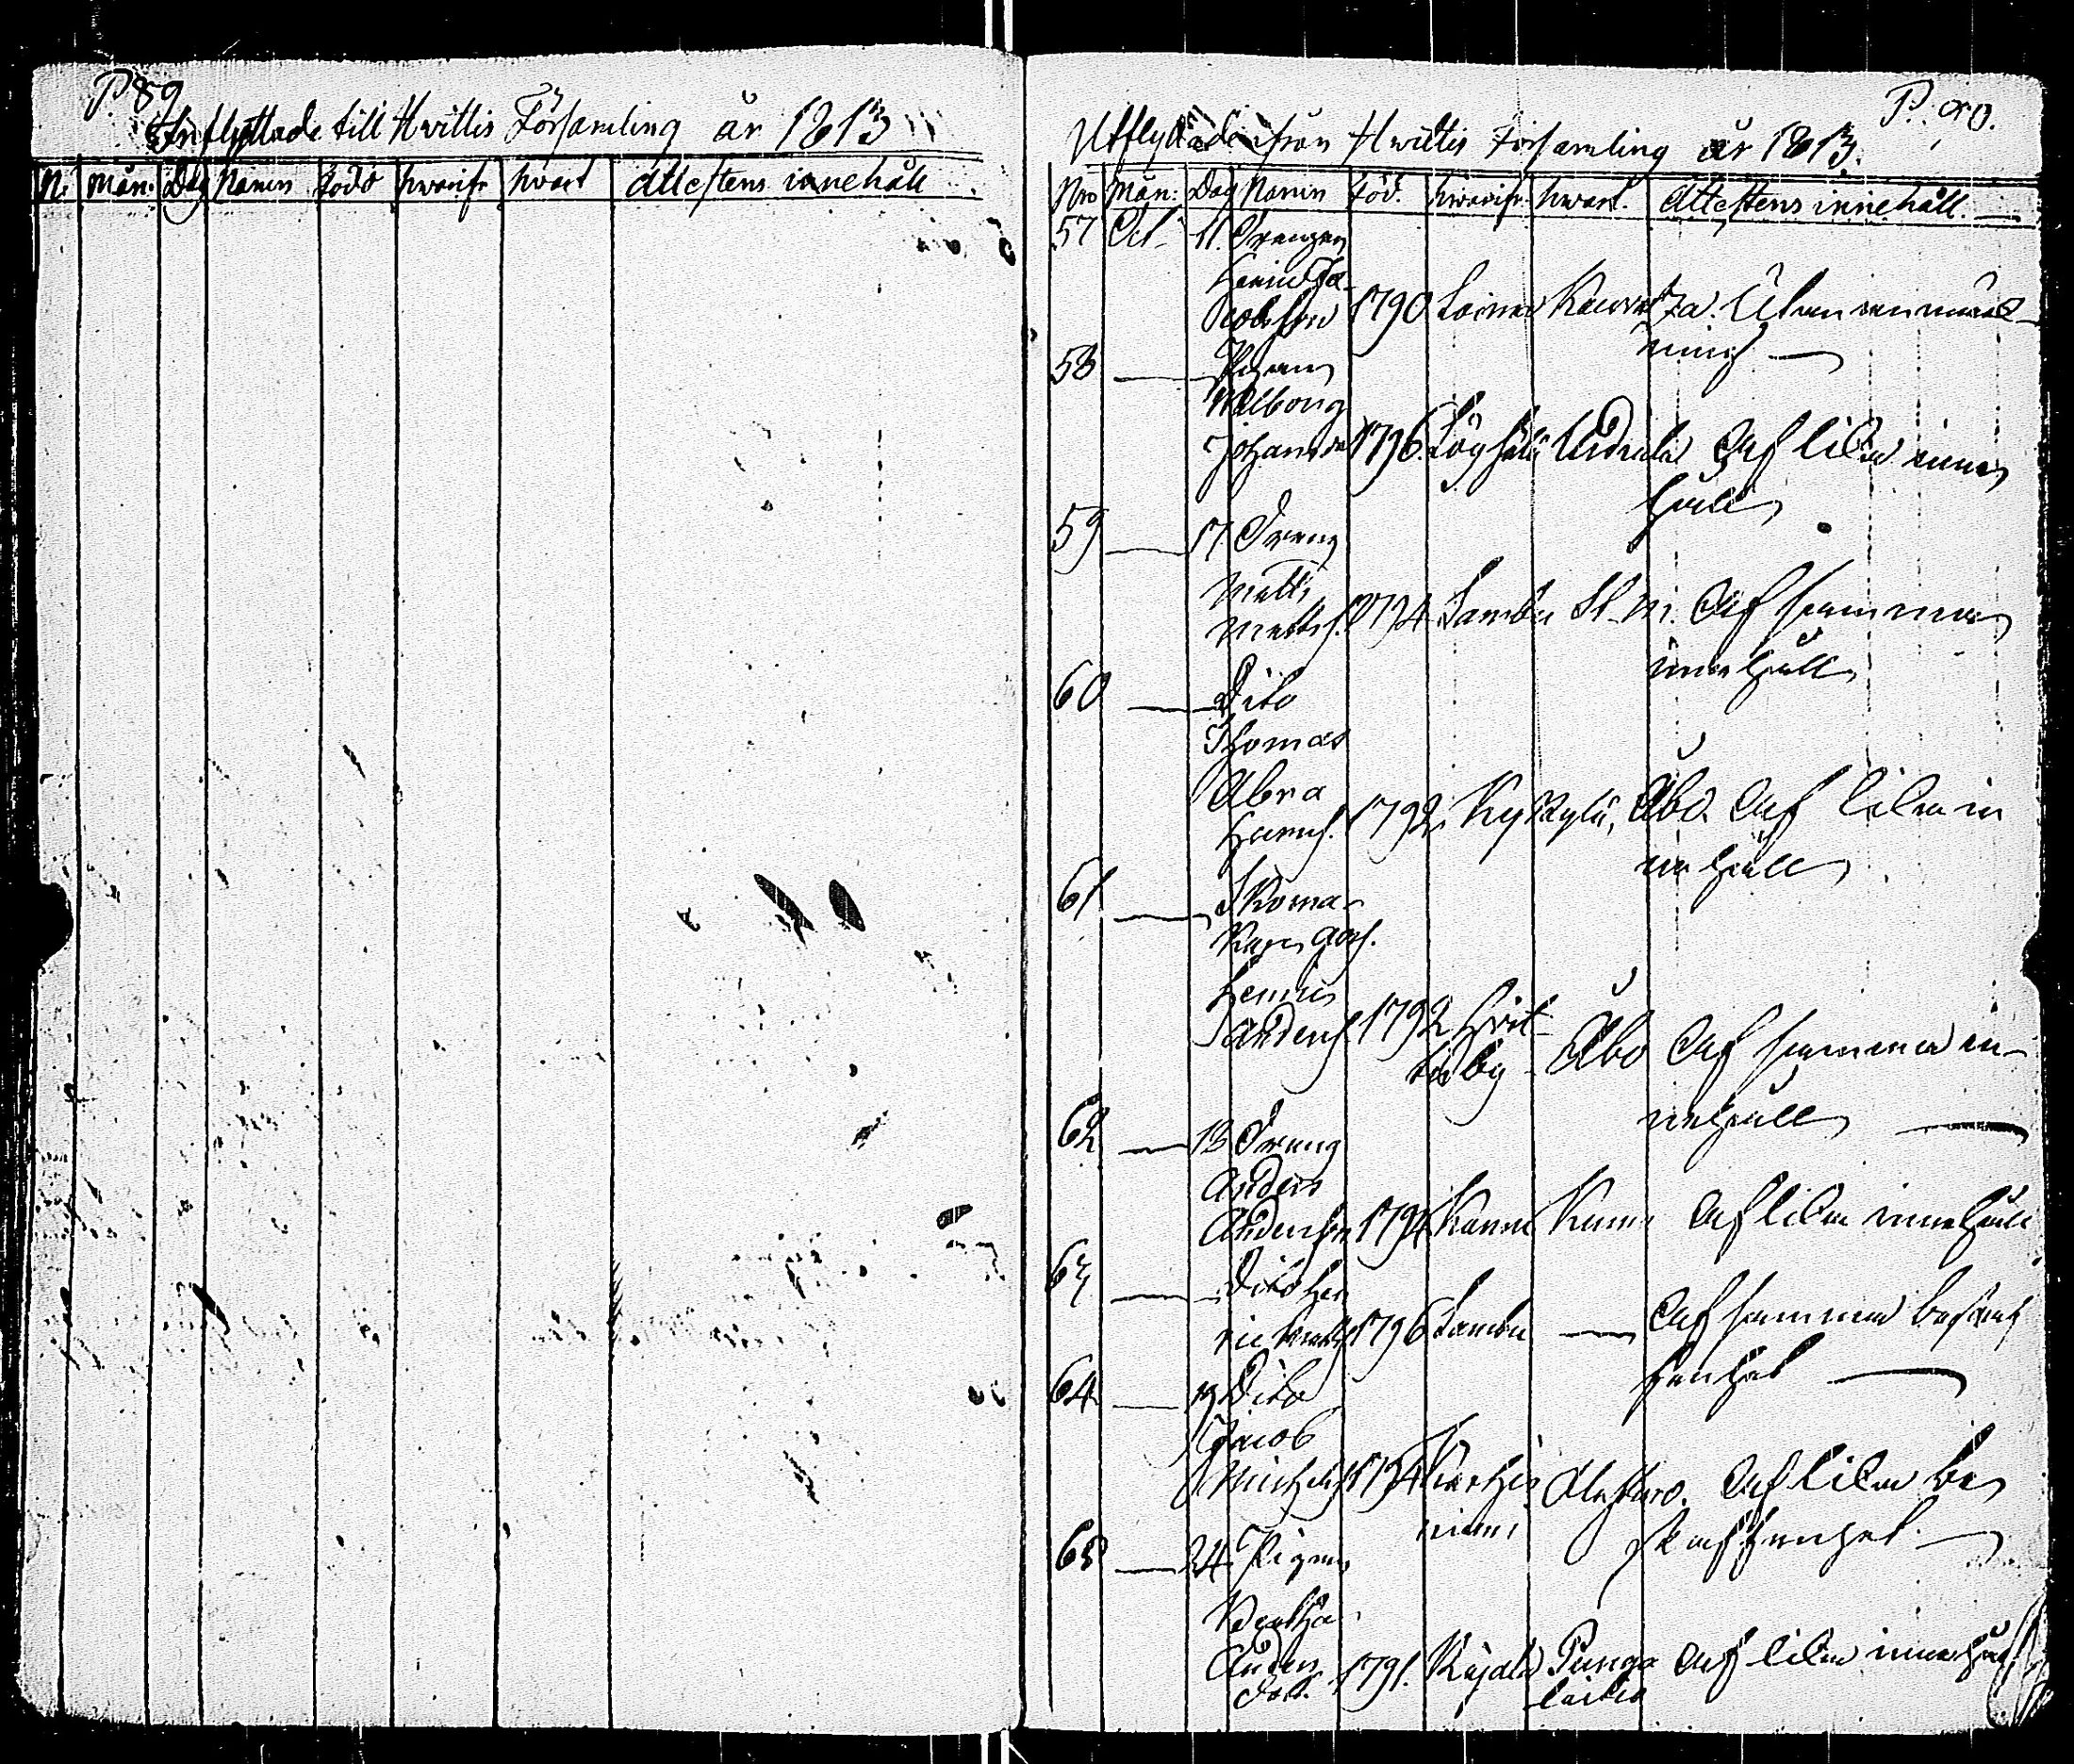 P 89
Inflyttade till Hwittis Församling år 1813
N. Mån: Dag Namn Född hwarifr hwart Attestens innehåll
P. 90.
Utflyttade ifrån Hwittis Församling år 1813.
Nro Mån: Dag Namn Föd. hwarifr hwart. Attestens innehåll.
57 Oct. 11. Drengen
Henric Ja-
cobsson 1790 Loima Kauvatza. Utan anmärk-
ning
58 Pigan
Walborg
Johansd 1796. Urdiala Af lika inne
håll
59 17 Dreng
Matts
Mattss. 1794 Sambu St. M. Af samma
innehåll
60 Dito
Thomas
Abra
hams. 1792 Kyskylä, Åbo Af lika in
nehåll
61 Skoma-
kare
Henric
Anders. 1792 Hvit-
tisby Åbo Af samma in-
nehåll
62 13 Dreng
Anders
Andersson 1794 Kumo Af lika innehåll
63 Dito Hen
ric 1796 Sambu Af samma beskaf
fenhet
64 19 Dito
Jacob
Michels 1794 Karhi
niemi Alastaro. Af lika be
skaffenhet.
65 24 Pigan
Bertha
Anders
dott. 1791. Rajala Punga
laitio Af lika innehåll